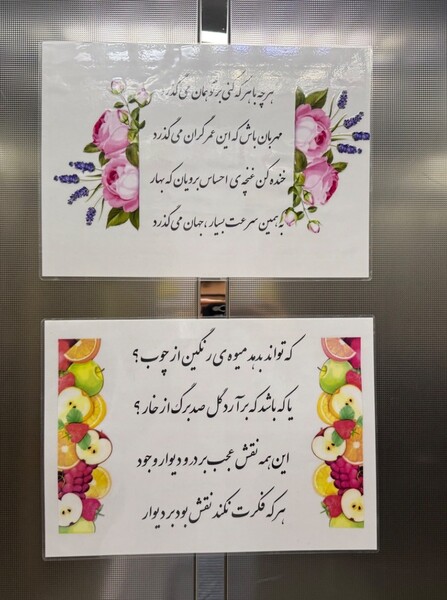 هرچه با هر که کنی بر تو همان می گذرد
مهربان باش که این عمر گران می گذرد
خنده کن غنچه ی احساس برویان که بهار
به همین سرعت بسیار، جهان می گذرد
که تواند بدهد میوه ی رنگین از چوب؟
یا که باشد که برآرد گل صد برگ از خار؟
این همه نقش عجب بر در و دیوار وجود
هر که فکرت نکند نقش بود بر دیوار